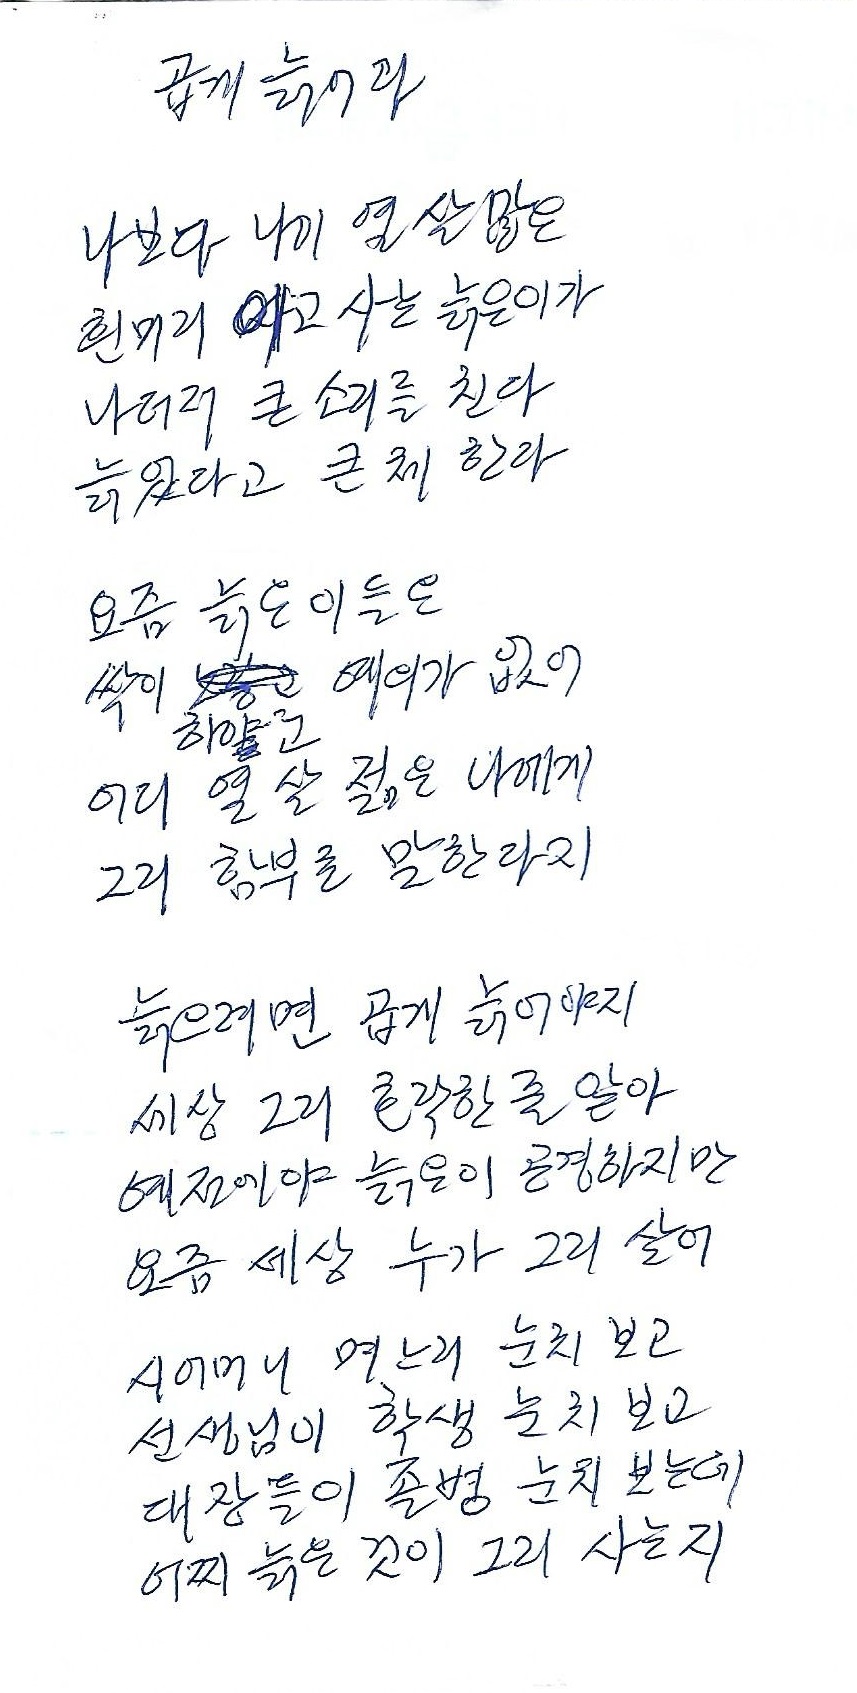 곱게 늙어라
나보다 나이 열 살 많은
흰머리 이고 사는 늙은이가
나더러 큰 소리를 친다
늙었다고 큰 체 한다
요즘 늙은이들은
싹이 예의가 없어
하얗고
어디 열 살 젊은 나에게
그리 함부로 말한다지
늙으려면 곱게 늙어야지
세상 그리 호락한 줄 알아
예전에야 늙은이 공경하지만
요즘 세상 누가 그리 살어
시어머니 며느리 눈치 보고
선생님이 학생 눈치 보고
대장들이 졸병 눈치 보는데
어찌 늙은 것이 그리 사는지